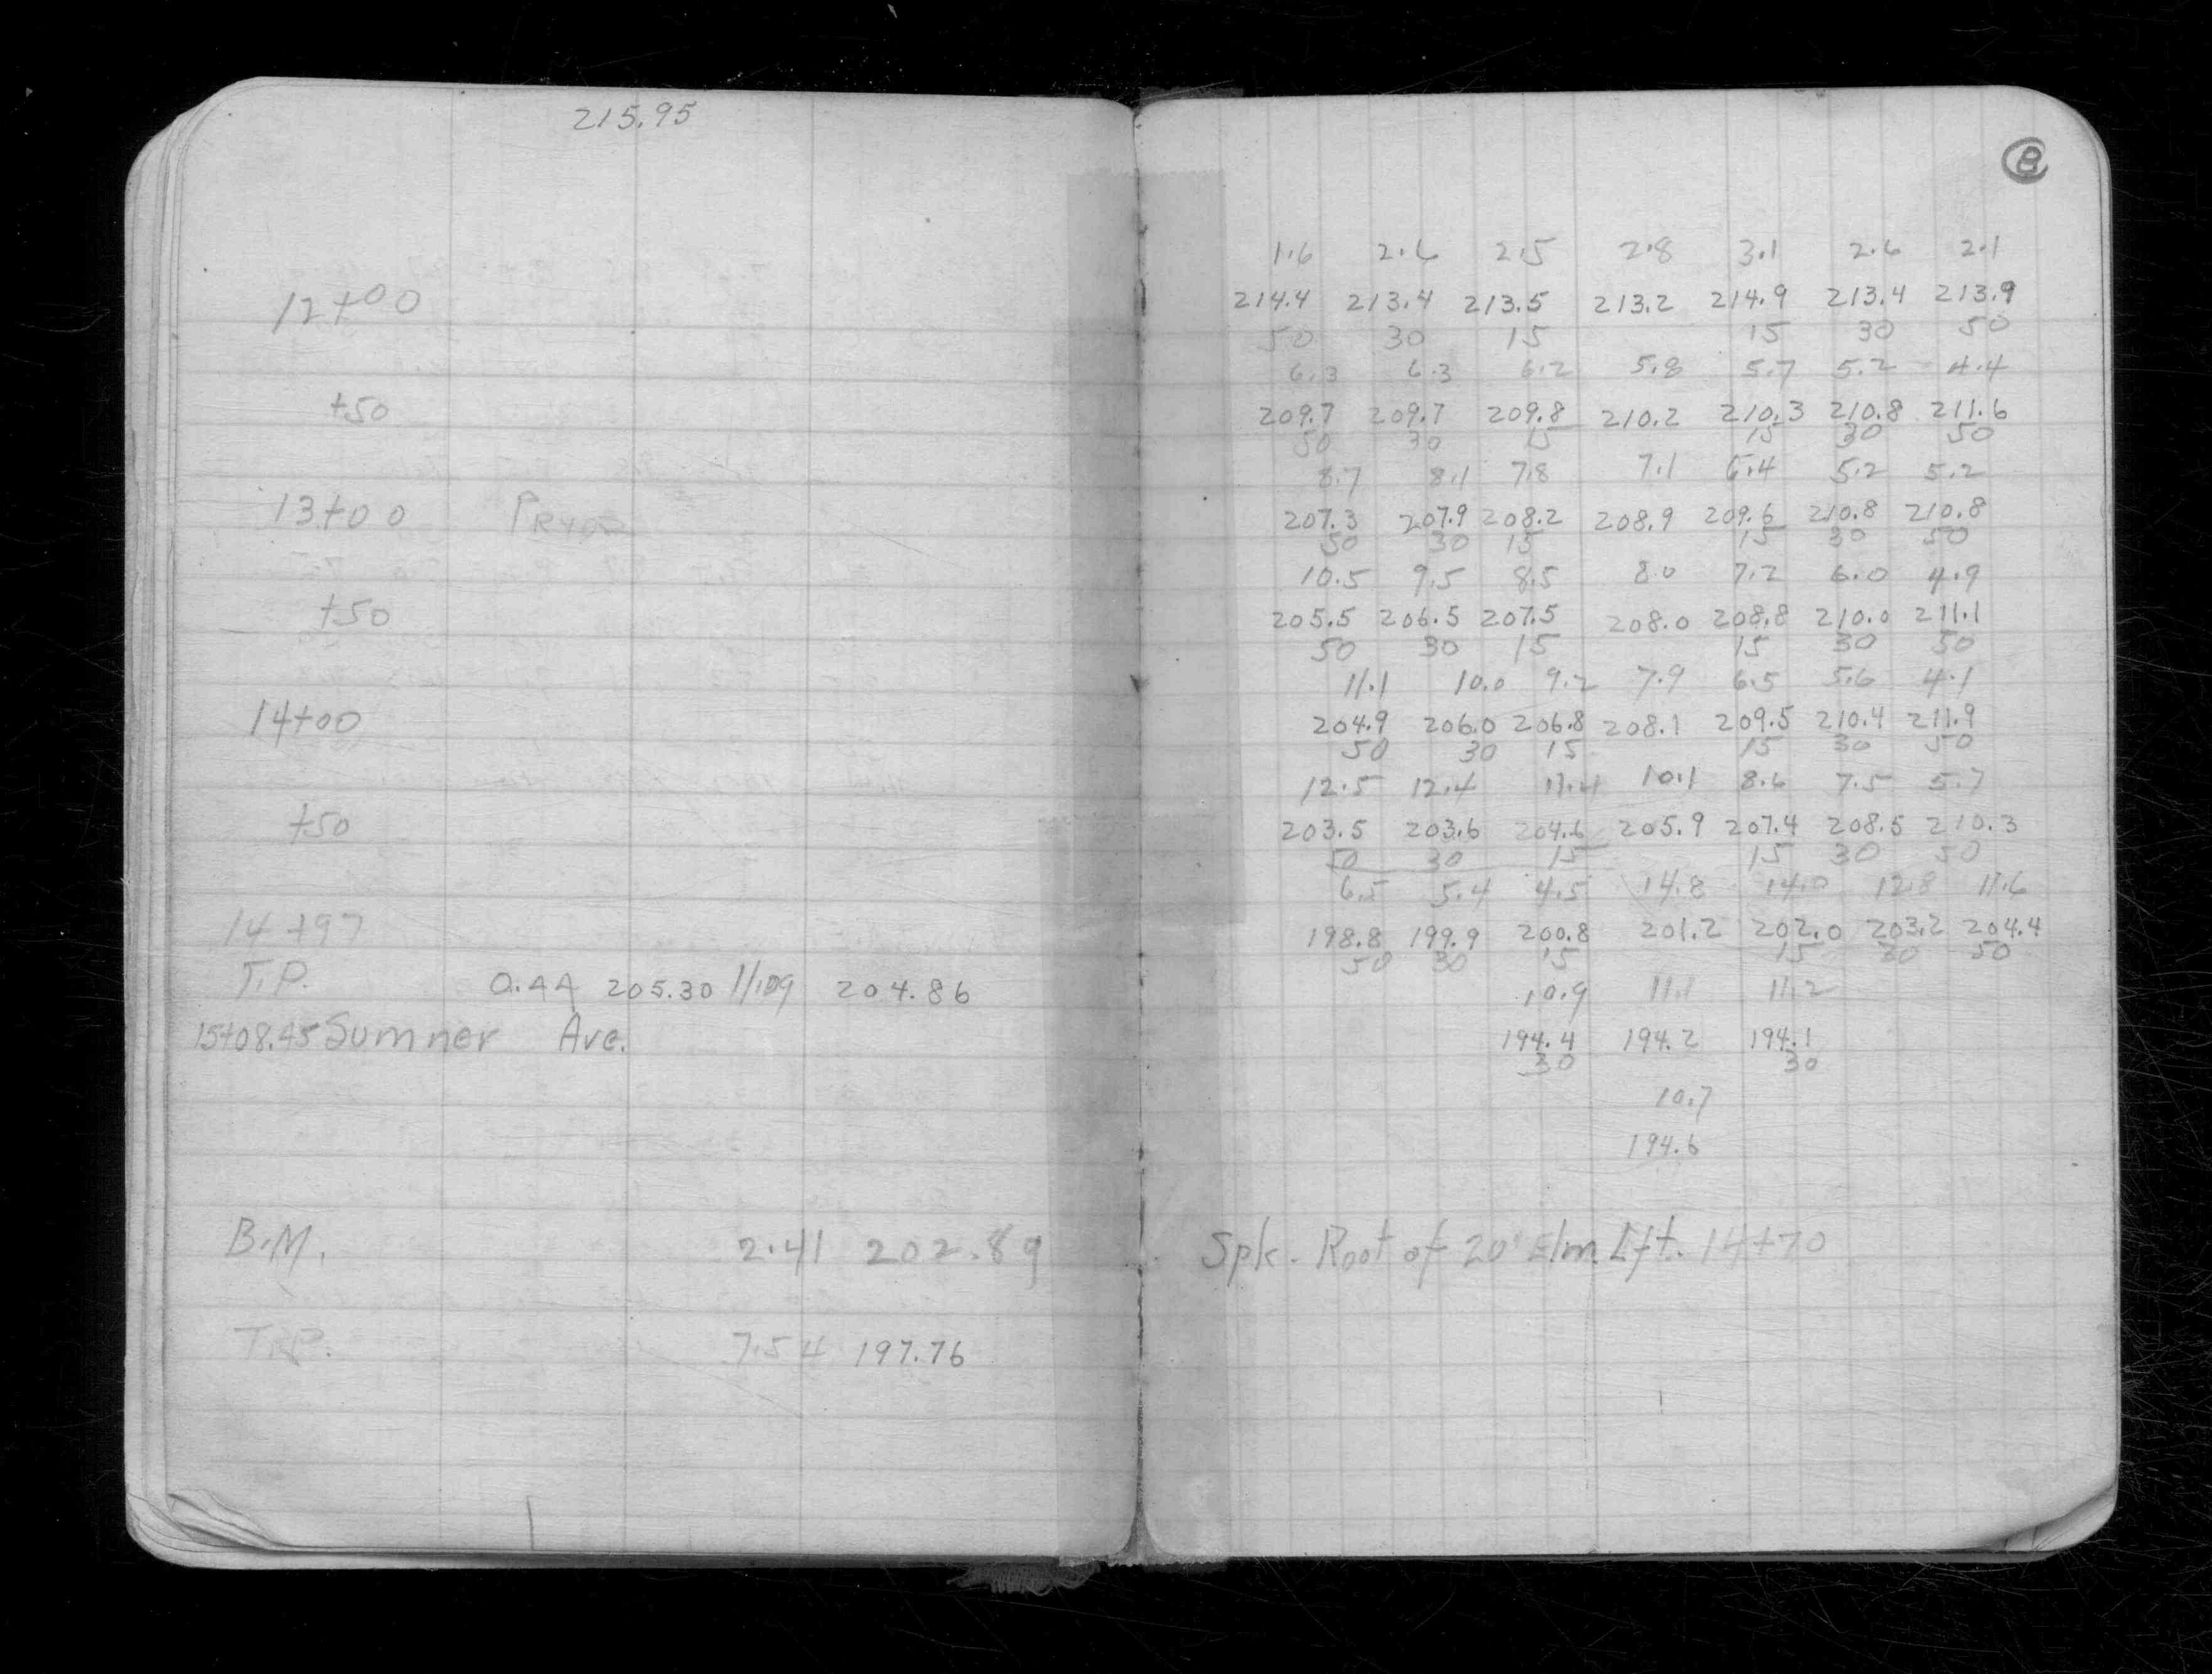 215.95
12+00
+50
13+00
+50
14+00
+50
14+97
T.P. 0.44 205.30 11.09 204.86
15+08.45 Sumner Ave.
B.M. 2.41 202.89
T.P. 7.54 197.76
8
1.6 2.6 2.5 2.8 3.1 2.6 2.1
214.4 213.4 213.5 213.2 214.9 213.4 213.9
50 30 15 15 30 50
6.3 6.3 6.2 5.8 5.7 5.2 4.4
209.7 209.7 209.8 210.2 210.3 210.8 211.6
50 30 15 15 30 50
8.7 8.1 7.8 7.1 6.4 5.2 5.2
207.3 207.9 208.2 208.9 209.6 210.8 210.8
50 30 15 15 30 50
10.5 9.5 8.5 8.0 7.2 6.0 4.9
205.5 206.5 207.5 208.0 208.8 210.0 211.1
50 30 15 15 30 50
11.1 10.0 9.2 7.9 6.5 5.6 4.1
204.9 206.0 206.8 208.1 209.5 210.4 211.9
50 30 15 15 30 50
12.5 12.4 11.4 10.1 8.6 7.5 5.7
203.5 203.6 204.6 205.9 207.4 208.5 210.3
50 30 15 15 30 50
6.5 5.4 4.5 14.8 14.0 12.8 11.6
198.8 199.9 200.8 201.2 202.0 203.2 204.4
50 30 15 15 30 50
10.9 11.1 11.2
194.4 194.2 194.1
30 30
10.7
194.6
Spk. Root of 20" Elm Lft. 14+70